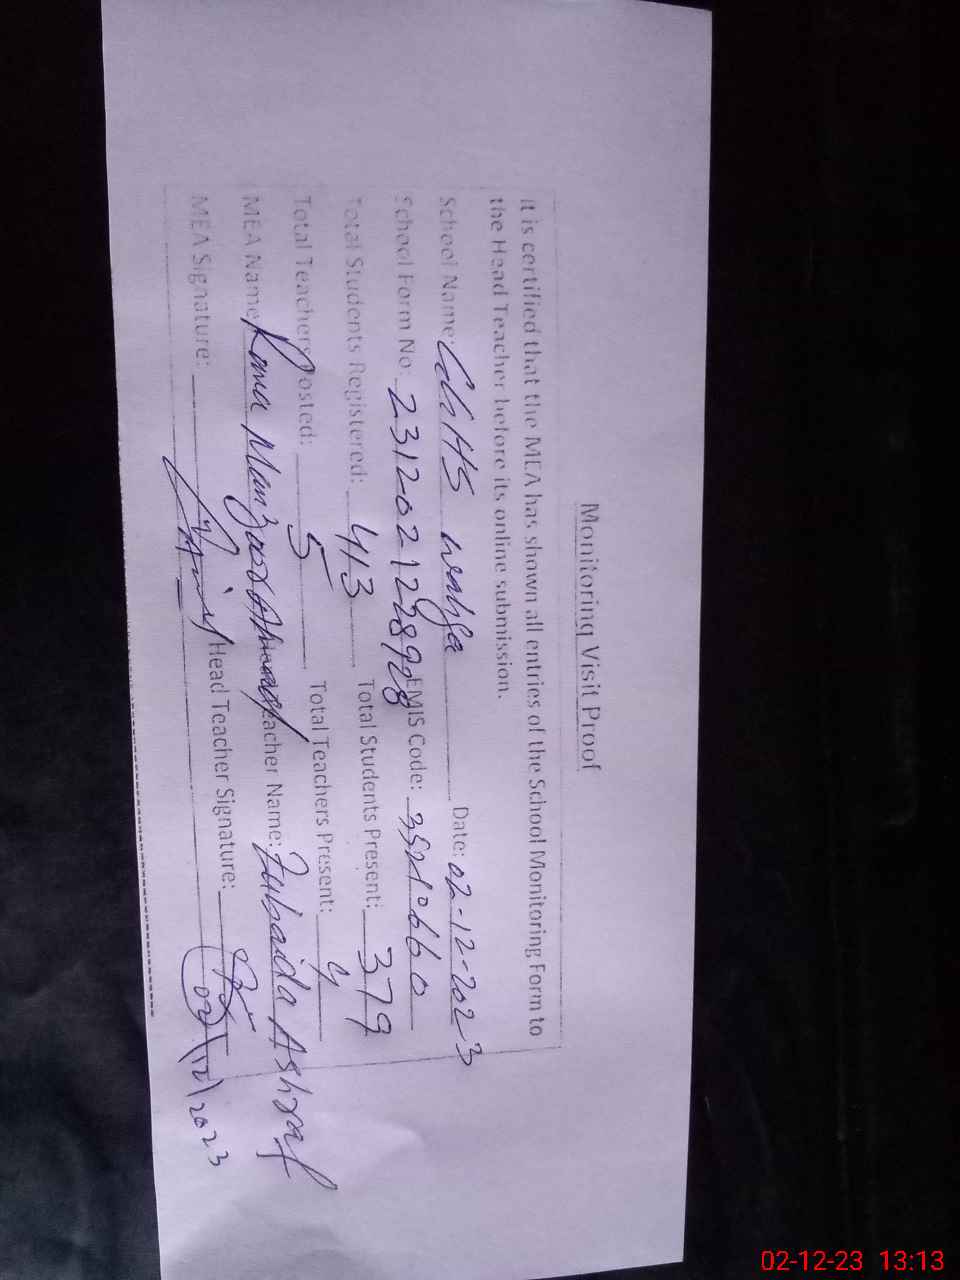 Monitoring Visit Proof
It is certified that the MEA has shown all entries of the School Monitoring Form to
the Head Teacher before its online submission.
School Name: GGHS Date: 02-12-2023
School Form No: EMIS Code:
Total Students Registered: 413 Total Students Present: 379
Total Teachers Posted: 5 Total Teachers Present: 4
MEA Name: Rana Manzoor Ahmad Teacher Name: Zubaida Ashraf
MEA Signature: Head Teacher Signature:
02/12/2023
02-12-23 13:13